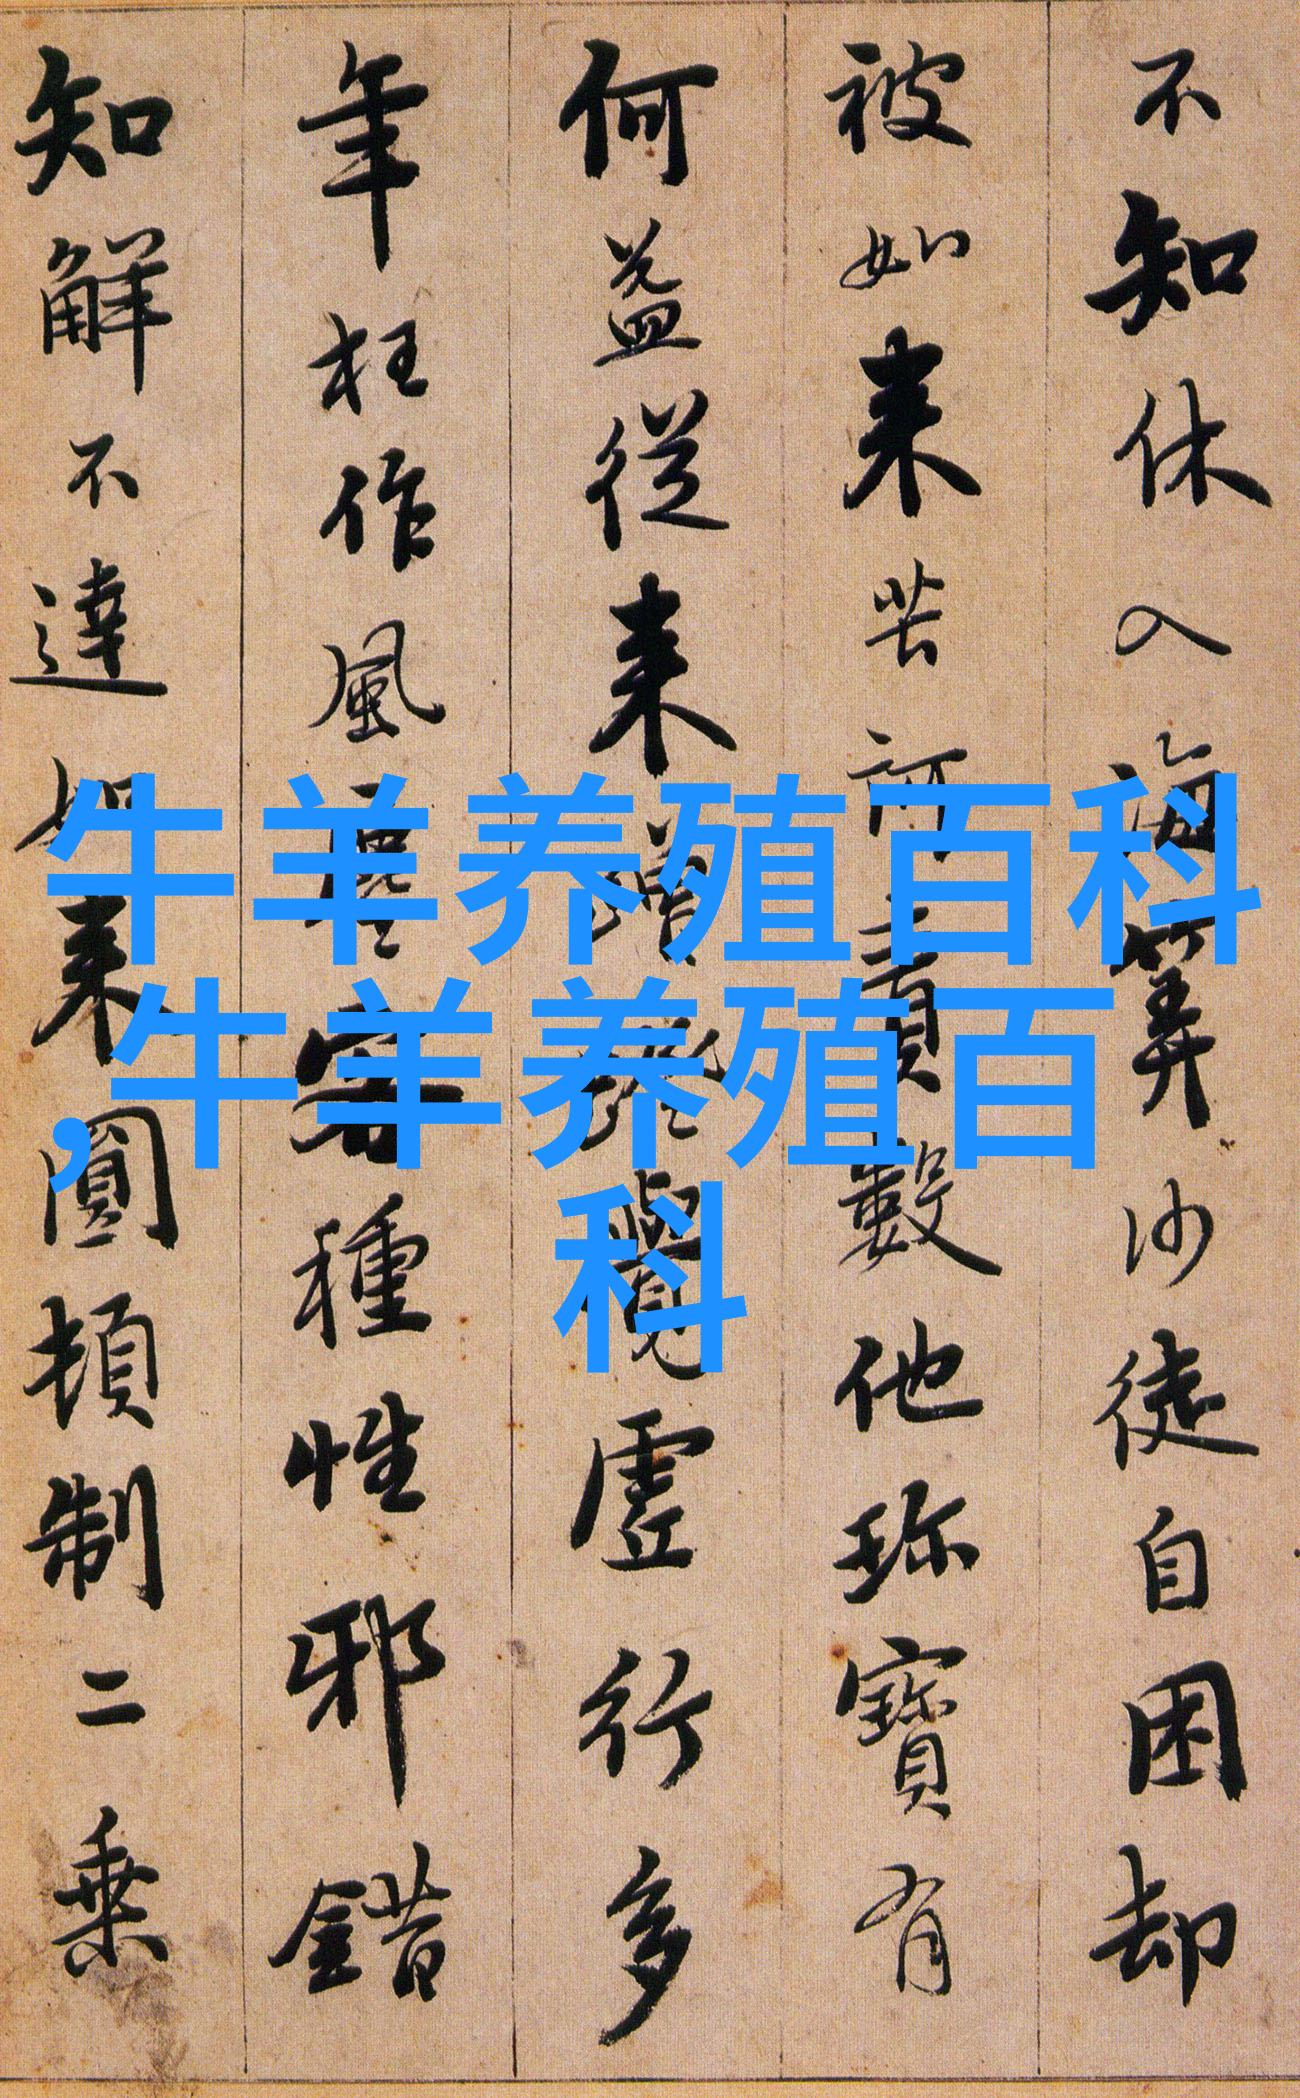 不知休入海筭沙徒自困却
被如来苦訶責數他珍寶有
何益從来蹭蹬覺虛行多
年枉作風塵客種性邪錯
知解不達如来圓頓制二乗
牛羊养殖百科
,牛羊养殖百
科